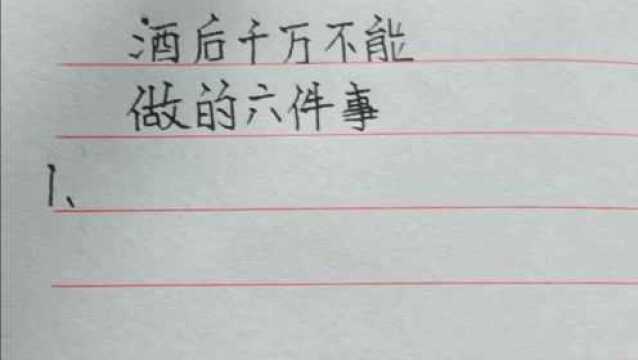 酒后千万不能
做的六件事
1、